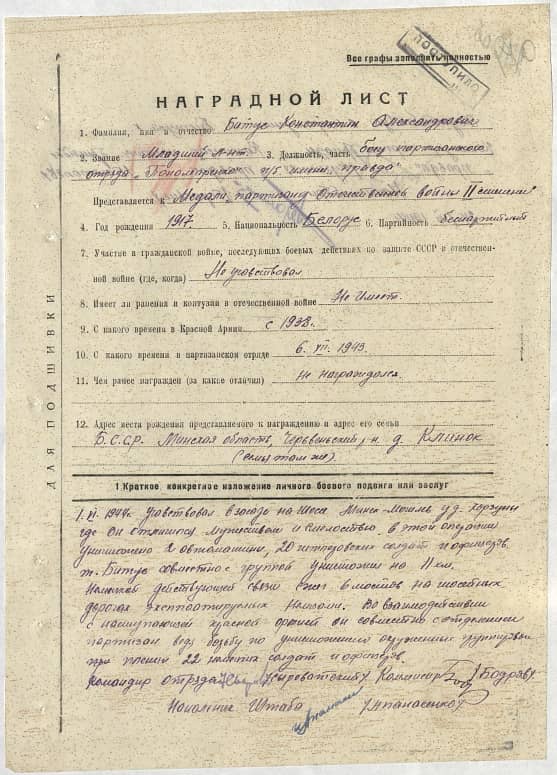 Все графы заполнить полностью
ПОСТУПИЛО
НАГРАДНОЙ ЛИСТ
1. Фамилия, имя и отчество Битус Константин Александрович
2. Звание Младший л-нт. 3. Должность, часть боец партизанского
отряда „Пономаренко" п/б имени „правда"
Представляется к Медали „партизанд Отечественной войны II степени"
4. Год рождения 1917. 5. Национальность Белорус 6. Партийность беспартийный
7. Участие в гражданской войне, последующих боевых действиях по защите СССР и отечествен-
ной войне (где, когда) Не уавствовал
8. Имеет ли ранения и контузии в отечественной войне Не Имеет.
9. С какого времени в Красной Армии с 1938г.
10. С какого времени в партизанском отряде 6. VII. 1943.
11. Чем ранее награжден (за какие отличия) Не награждался.
12. Адрес места рождения представляемого к награждению и адрес его семьи
Б.С.С.Р. Минская область, Червеньский р-н д. Клинок
(семья там же)
ДЛЯ ПОДШИВКИ
1 Краткое, конкретное изложение личного боевого подвига или заслуг
1. VI. 1944г. Уавствовал в засаде на шоссе Минск-Могилев у д.
где Он отличился мужеством и смелостью в этой операции
уничтожено 2 автомашины, 20 гитлеровских солдат и офицеров.
т. Битус совместно с группой уничтожил на 11 км.
немецкой действующей связи сжег 2 моста на шоссейных
дорогах эксплоатируемых Немцами. Во взаимодействии
с наступающей красной армией он совместно с отделением
партизан вел борьбу по уничтожению окруженных группировок
при пленил 22 немецких солдат и офицеров.
Командир отряда Комиссар
Начальник Штаба /Апанасенко/